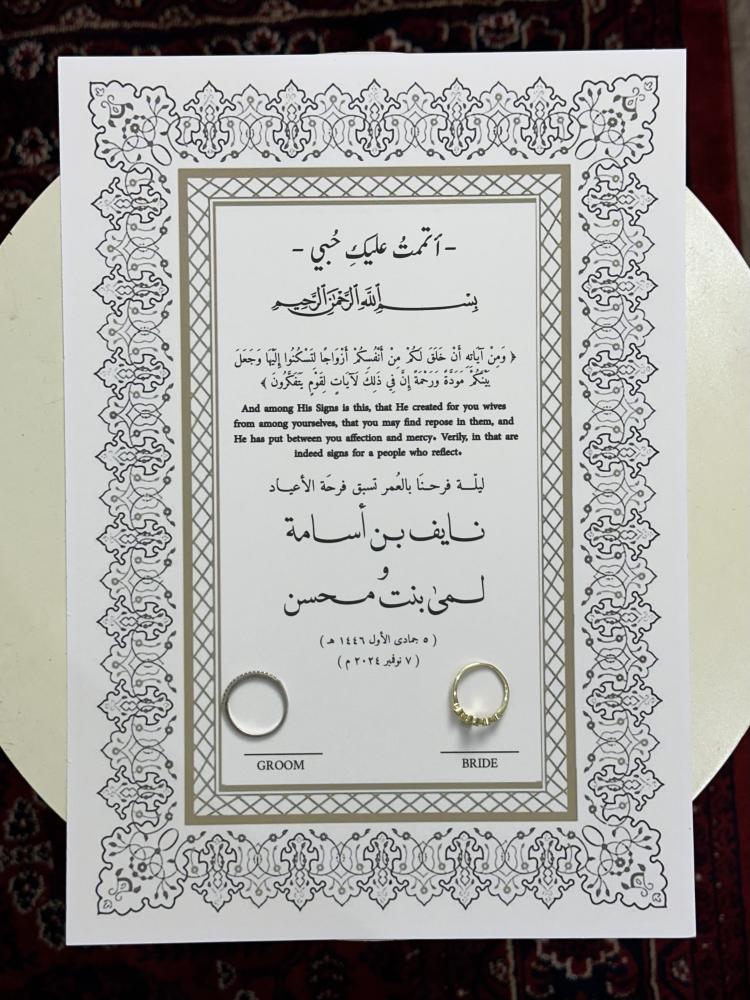 - أتممتُ عليكِ حُبي -
بسم الله الرحمن الرحيم
﴿ وَمِنْ آيَاتِهِ أَنْ خَلَقَ لَكُمْ مِنْ أَنْفُسِكُمْ أَزْوَاجًا لِتَسْكُنُوا إِلَيْهَا وَجَعَلَ
بَيْنَكُمْ مَوَدَّةً وَرَحْمَةً إِنَّ فِي ذَلِكَ لَآيَاتٍ لِقَوْمٍ يَتَفَكَّرُونَ ﴾
And among His Signs is this, that He created for you wives
from among yourselves, that you may find repose in them, and
He has put between you affection and mercy. Verily, in that are
indeed signs for a people who reflect.
ليلـة فرحنَا بالعُمر تسبق فرحَة الأعياد
نايف بن أسامة
و
لمى بنت محسن
( ٥ جمادى الأول ١٤٤٦ هـ )
( ٧ نوفمبر ٢٠٢٤ م )
GROOM
BRIDE